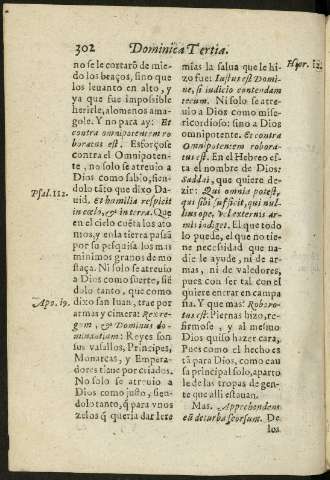 302 Dominica Tertia.
no se le cortarõ de mie-
do los braços, sino que
los leuanto en alto, y
ya que fue impossible
herirle, alomenos ama-
gole. Y no para ay: Et
contra omnipotentem ro-
boratus est. Esforçose
contra el Omnipoten-
te, no solo se atreuio a
Dios como sabio, sien-
dolo tãto que dixo Da-
Psal. 112.
uid, Et humilia respicit
in cœlo, & in terra. Que
en el cielo cuẽta los ato-
mos, y en la tierra passa
por su pesquisa los mas
minimos granos de mo
staça. Ni solo se atreuio
a Dios como suerte, siẽ
dolo tanto, que como
Apo. 19.
dixo san Iuan, trae por
armas y cimera: Rex re-
gum, & Dominus do-
minantium: Reyes son
sus vasallos, Principes,
Monarcas, y Empera-
dores tiene por criados.
No solo se atreuio a
Dios como justo, sien-
dolo tanto, q̃ para vnos
zelos q̃ queria dar Iere
mias la salua que le hi-
Hier. 12.
zo fue: Iustus est Domi-
ne, si iudicio contendam
tecum. Ni solo se atre-
uio a Dios como mise-
ricordioso: sino a Dios
omnipotente. Et contra
Omnipotentem robora-
tus est. En el Hebreo es-
ta el nombre de Dios:
Saddai, que quiere de-
zir: Qui omnia potest,
qui sibi sufficit, qui nul-
lius ope, vel externis ar-
mis indiget. El que todo
lo puede, el que no tie-
ne necesidad que na-
die le ayude, ni de ar-
mas, ni de valedores,
pues con ser tal con el
quiere entrar en campa
ña. Y que mas? Robora-
tus est: Piernas hizo, re-
firmose, y al mesmo
Dios quiso hazer cara,
Pues como el hecho es
tà para Dios, como cau
sa principal solo, aparto
le de las tropas de gen-
te que alli estauan.
Mas. Apprehendens
eũ de turba seorsum. De
los